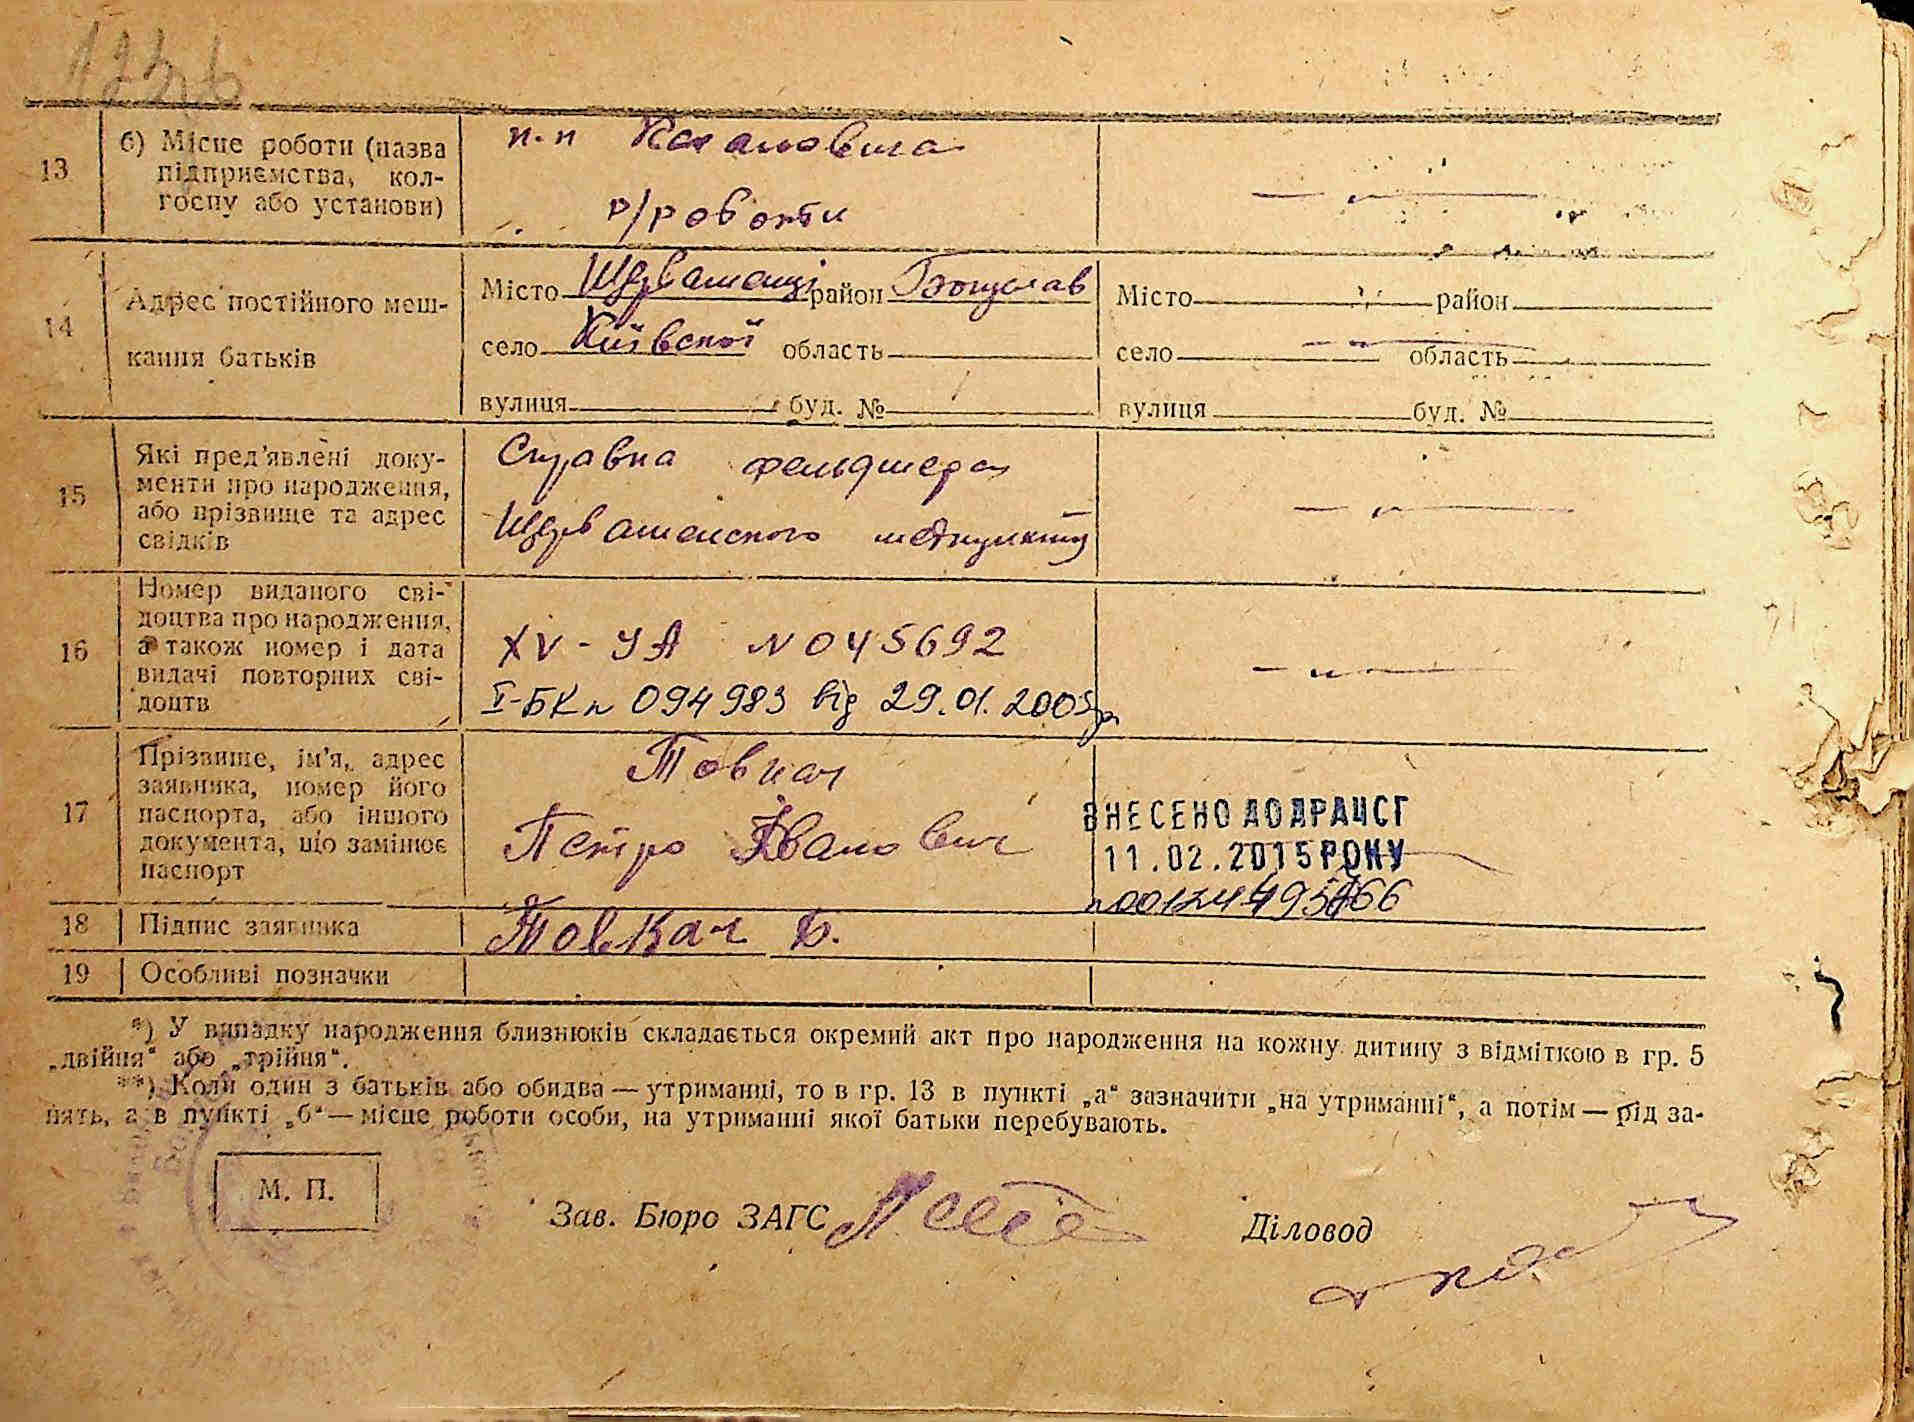 123 б
13
б) Місце роботи (назва
підприємства, кол-
госпу або установи)
п.п Кагановича
р/роботи
14
Адрес постійного меш-
кання батьків
Місто район Богуслав
село Київської область
вулиця буд. №
Місто район
село область
вулиця буд. №
15
Які пред'явлені доку-
менти про народження,
або прізвище та адрес
свідків
Справка фельдшера
медпункту
16
Номер виданого сві-
доцтва про народження,
а також номер і дата
видачі повторних сві-
доцтв
XV-УА N 045692
І-БК № 094983 від 29.01.2005р
17
Прізвище, ім'я, адрес
заявника, номер його
паспорта, або іншого
документа, що замінює
паспорт
Товкач
Петро Іванович
ВНЕСЕНО ДО ДРАЦСГ
11.02.2015 РОКУ
18
Підпис заявника
Товкач П.
19
Особливі позначки
*) У випадку народження близнюків складається окремий акт про народження на кожну дитину з відміткою в гр. 5
„двійня“ або „трійня“.
**) Коли один з батьків або обидва — утриманці, то в гр. 13 в пункті „а“ зазначити „на утриманні“, а потім — рід за-
нять, а в пункті „б“ — місце роботи особи, на утриманні якої батьки перебувають.
М. П.
Зав. Бюро ЗАГС
Діловод